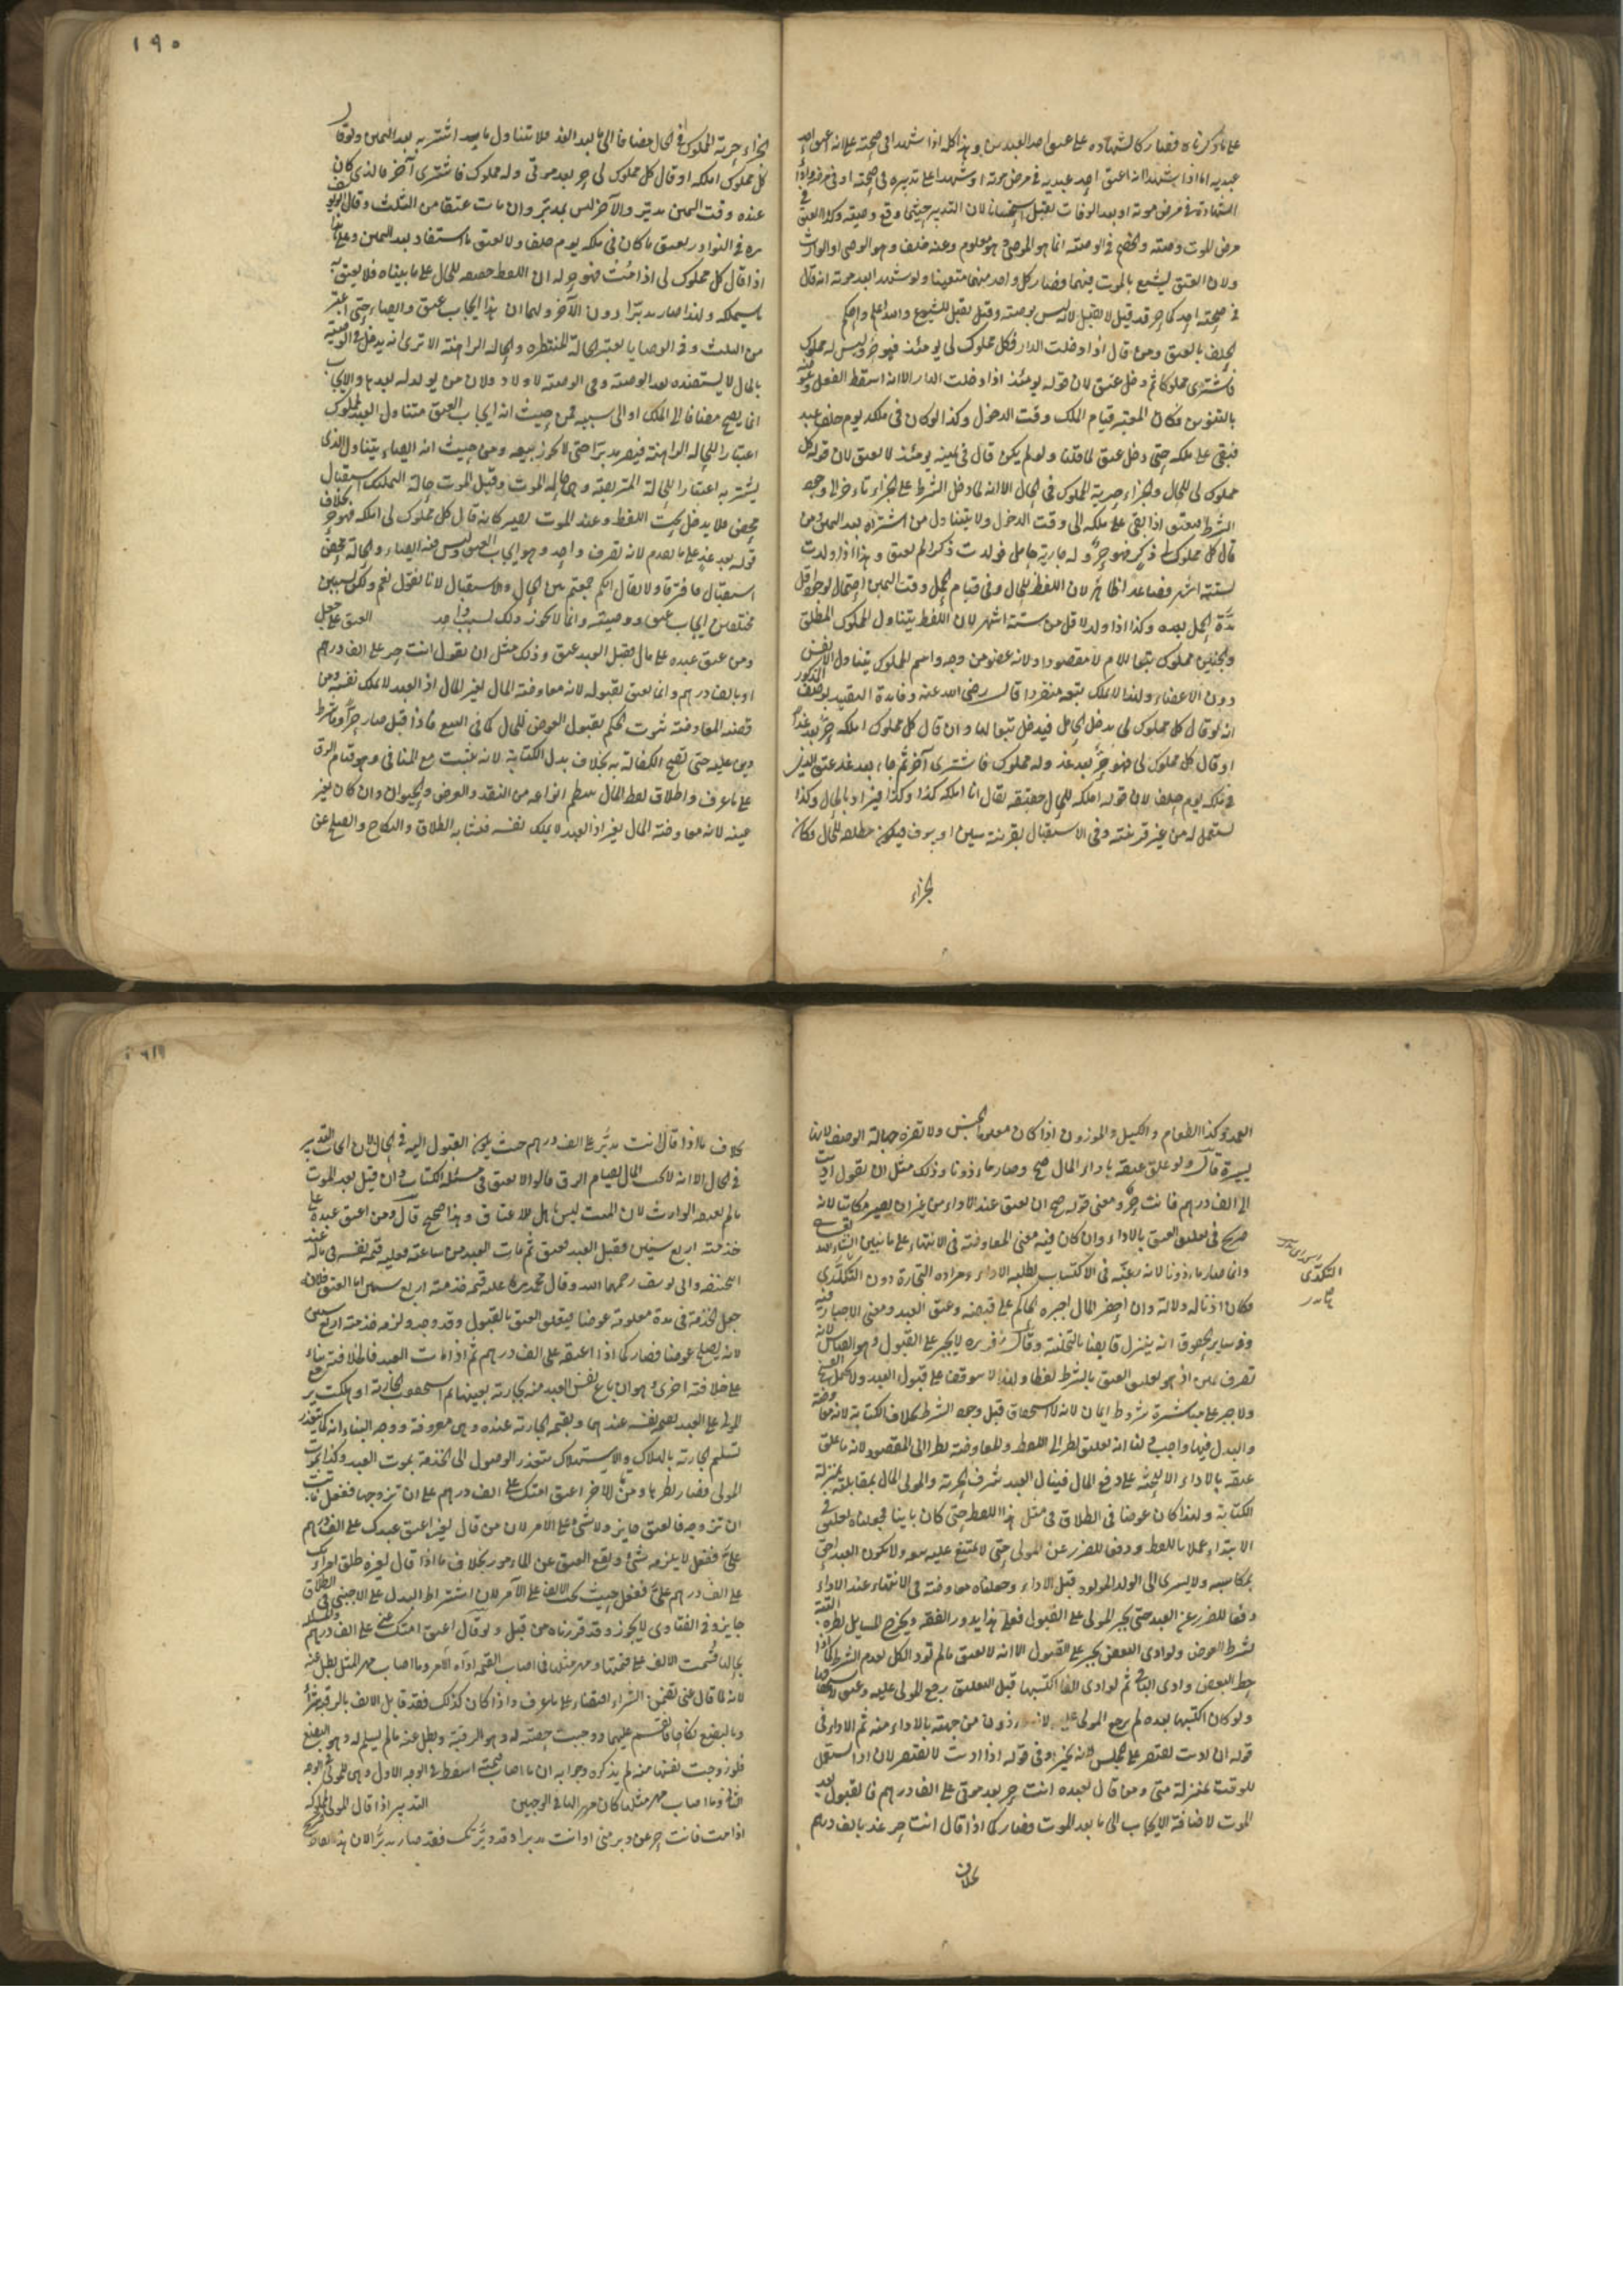 على ما ذكرناه فصار كالشهادة على عتق احد العبدين وهذا كله اذا شهدا في صحته على انه اعتق احد
عبديه اما اذا شهدا انه اعتق احد عبديه في مرض موته او شهدا على تدبيره في صحته او في مرضه واداء
الشهادة في مرض موته او بعد الوفات تقبل استحسانا لان التدبير حيثما وقع وقع وصية وكذا العتق في
مرض الموت وصية والخصم في الوصية انما هو الموصي وهو معلوم وعنه خلف وهو الوصي او الوارث
ولان العتق يشيع بالموت فيهما فصار كل واحد منهما متعينا ولو شهدا بعد موته انه قال
في صحته احدكما حر قد قيل لا تقبل لانه ليس بوصية وقيل تقبل للشيوع والله اعلم
الحلف بالعتق ومن قال اذا دخلت الدار فكل مملوك لي يومئذ فهو حر وليس له مملوك
فاشترى مملوكا ثم دخل عتق لان قوله يومئذ اذا دخلت الدار الا انه اسقط الفعل وعوضه
بالتنوين فكان المعتبر قيام الملك وقت الدخول وكذا لو كان في ملكه يوم حلف عبد
فبقي على ملكه حتى دخل عتق لما قلنا ولو لم يكن قال في يمينه يومئذ لا يعتق لان قوله كل
مملوك لي للحال والجزاء حرية المملوك في الحال الا انه لما دخل الشرط على الجزاء تأخر الى وجود
الشرط فيعتق اذا بقي على ملكه الى وقت الدخول ولا يتناول من اشتراه بعد اليمين ومن
قال كل مملوك لي ذكر فهو حر وله جارية حامل فولدت ذكرا لم يعتق وهذا اذا ولدت
لستة اشهر فصاعدا ظاهر لان اللفظ للحال وفي قيام الحمل وقت اليمين احتمال لوجود اقل
مدة الحمل بعده وكذا اذا ولد لاقل من ستة اشهر لان اللفظ يتناول المملوك المطلق
والجنين مملوك تبعا للام لا مقصودا ولانه عضو من وجه واسم المملوك يتناول الانفس
دون الاعضاء ولهذا لا يملك بيعه منفردا قال رضي الله عنه وفائدة التقييد بوصف الذكور
انه لو قال كل مملوك لي يدخل الحامل فيدخل تبعا لها وان قال كل مملوك املكه حر بعد غد
او قال كل مملوك لي فهو حر بعد غد وله مملوك فاشترى آخر ثم جاء بعد غد عتق الذي
في ملكه يوم حلف لان قوله املكه للحال حقيقة يقال انا املك كذا وكذا ويراد به الحال وكذا
يستعمل له من غير قرينة وفي الاستقبال بقرينة سين او سوف فيكون مطلقه للحال فكان
الجزاء
١٩٠
الجزاء حرية المملوك في الحال مضافا الى ما بعد الغد فلا تتناول ما يشتريه بعد اليمين ولو قال
كل مملوك املكه او قال كل مملوك لي حر بعد موتي وله مملوك فاشترى آخر فالذي كان
عنده وقت اليمين مدبر والآخر ليس بمدبر وان مات عتقا من الثلث وقال ابو يوسف
ره في النوادر يعتق ما كان في ملكه يوم حلف ولا يعتق ما استفاد بعد اليمين وعلى هذا
اذا قال كل مملوك لي اذا مت فهو حر له ان اللفظ حقيقة للحال على ما بيناه فلا يعتق به
ما سيملكه ولهذا صار مدبرا دون الآخر ولهما ان هذا ايجاب عتق وايصاء حتى اعتبر
من الثلث وفي الوصايا يعتبر الحالة المنتظرة والحالة الراهنة الا ترى انه يدخل في الوصية
بالمال ما يستفيده بعد الوصية وفي الوصية لاولاد فلان من يولد له بعدها والايجاب
انما يصح مضافا الى الملك او الى سببه فمن حيث انه ايجاب العتق يتناول العبد المملوك
اعتبارا للحالة الراهنة فيصير مدبرا حتى لا يجوز بيعه ومن حيث انه ايصاء يتناول الذي
يشتريه اعتبارا للحالة المتربصة وهي حالة الموت وقبل الموت حالة التملك استقبال
محض فلا يدخل تحت اللفظ وعند الموت يصير كانه قال كل مملوك لي املكه فهو حر بخلاف
قوله بعد غد على ما تقدم لانه تصرف واحد وهو ايجاب العتق وليس فيه ايصاء والحالة محض
استقبال فافترقا ولا يقال انكم جمعتم بين الحال والاستقبال لانا نقول نعم ولكن بسببين
مختلفين ايجاب عتق ووصية وانما لا يجوز ذلك بسبب واحد العتق على جعل
ومن عتق عبده على مال فقبل العبد عتق وذلك مثل ان يقول انت حر على الف درهم
او بالف درهم وانما يعتق بقبوله لانه معاوضة المال بغير المال اذ العبد لا يملك نفسه ومن
قضية المعاوضة ثبوت الحكم بقبول العوض للحال كما في البيع فاذا قبل صار حرا وما شرط
دين عليه حتى تصح الكفالة به بخلاف بدل الكتابة لانه يثبت مع المنافي وهو قيام الرق
على ما عرف واطلاق لفظ المال ينتظم انواعه من النقد والعرض والحيوان وان كان بغير
عينه لانه معاوضة المال بغير المال اذ العبد لا يملك نفسه فشابه الطلاق والنكاح والصلح عن
العمد وكذا الطعام والكيل والموزون اذا كان معلوم الجنس ولا تضره جهالة الوصف لانها
يسيرة قال ولو علق عتقه باداء المال صح وصار ماذونا وذلك مثل ان يقول ان اديت
الي الف درهم فانت حر ومعنى قوله صح ان يعتق عند الاداء من غير ان يصير مكاتبا لانه
صريح في تعليق العتق بالاداء وان كان فيه معنى المعاوضة في الانتهاء على ما نبين ان شاء الله
وانما صار ماذونا لانه رغبه في الاكتساب بطلبه الاداء ومراده التجارة دون التكدي
فكان اذنا له دلالة وان احضر المال اجبره الحاكم على قبضه وعتق العبد ومعنى الاجبار فيه
وفي سائر الحقوق انه ينزل قابضا بالتخلية وقال زفر ره لا يجبر على القبول وهو القياس لانه
تصرف يمين اذ هو تعليق العتق بالشرط لفظا ولهذا لا يتوقف على قبول العبد ولا يحتمل الفسخ
ولا جبر على مباشرة شروط ايمان لانه لا استحقاق قبل وجود الشرط بخلاف الكتابة لانه معاوضة
والبدل فيها واجب ولنا انه تعليق نظرا الى اللفظ ومعاوضة نظرا الى المقصود لانه ما علق
عتقه بالاداء الا ليحثه على دفع المال فينال العبد شرف الحرية والمولى المال بمقابلته بمنزلة
الكتابة ولهذا كان عوضا في الطلاق في مثل هذا اللفظ حتى كان باينا فجعلناه تعليقا في
الابتداء عملا باللفظ ودفعا للضرر عن المولى حتى لا يمتنع عليه بيعه ولا يكون العبد احق
بمكاسبه ولا يسري الى الولد المولود قبل الاداء وجعلناه معاوضة في الانتهاء عند الاداء
دفعا للضرر عن العبد حتى يجبر المولى على القبول فعلى هذا يدور الفقه ويخرج المسايل نظيره الهبة
بشرط العوض ولو ادى البعض يجبر على القبول الا انه لا يعتق ما لم يؤد الكل لعدم الشرط كما اذا
حط البعض وادى الباقي ثم لو ادى الفا اكتسبها قبل التعليق رجع المولى عليه وعتق لاستحقاقها
ولو كان اكتسبها بعده لم يرجع المولى عليه لانه ماذون من جهته بالاداء منه ثم الاداء في
قوله ان اديت يقتصر على المجلس لانه تخيير وفي قوله اذا اديت لا يقتصر لان اذا يستعمل
للوقت بمنزلة متى ومن قال لعبده انت حر بعد موتي على الف درهم فالقبول بعد
الموت لاضافة الايجاب الى ما بعد الموت فصار كما اذا قال انت حر غدا بالف درهم
بخلاف
التكدي
بخلاف ما اذا قال انت مدبر على الف درهم حيث يكون القبول اليه في الحال لان ايجاب التدبير
في الحال الا انه لا يجب المال لقيام الرق قالوا لا يعتق في مسئلة الكتاب وان قبل بعد الموت
ما لم يعتقه الوارث لان الميت ليس باهل للاعتاق وهذا صحيح قال ومن اعتق عبده على
خدمته اربع سنين فقبل العبد فعتق ثم مات العبد من ساعته فعليه قيمة نفسه في ماله عند
ابي حنيفة وابي يوسف رحمهما الله وقال محمد ره عليه قيمة خدمته اربع سنين اما العتق فلانه
جعل الخدمة في مدة معلومة عوضا فيتعلق العتق بالقبول وقد وجد ولزمه خدمته اربع سنين
لانه يصلح عوضا فصار كما اذا اعتقه على الف درهم ثم اذا مات العبد فالخلافية بناء
على خلافية اخرى وهو ان باع نفس العبد منه بجارية بعينها ثم استحقت الجارية او هلكت يرجع
المولى على العبد بقيمة نفسه عندهما وبقيمة الجارية عنده وهي معروفة ووجه البناء انه كما يتعذر
تسليم الجارية بالهلاك والاستحقاق يتعذر الوصول الى الخدمة بموت العبد وكذا بموت
المولى فصار نظيرها ومن قال لآخر اعتق امتك على الف درهم على ان تزوجها ففعل فابت
ان تزوجه فالعتق جايز ولا شيء على الآمر لان من قال لغيره اعتق عبدك على الف درهم
علي ففعل لا يلزمه شيء ويقع العتق عن المامور بخلاف ما اذا قال لغيره طلق امراتك
على الف درهم علي ففعل حيث يجب الالف على الآمر لان اشتراط البدل على الاجنبي في الطلاق
جايز وفي العتاق لا يجوز وقد قررناه من قبل ولو قال اعتق امتك عني على الف درهم
بحالها قسمت الالف على قيمتها ومهر مثلها فما اصاب القيمة اداه الآمر وما اصاب مهر المثل بطل عنه
لانه لما قال عني تضمن الشراء اقتضاء على ما عرف واذا كان كذلك فقد قابل الالف بالرقبة شراء
وبالبضع نكاحا فانقسم عليهما ووجبت حصة له وهو الرقبة وبطل عنه ما لم يسلم له وهو البضع
فلو زوجت نفسها منه لم يذكره وجوابه ان ما اصاب قيمتها سقط في الوجه الاول وهي للمولى في الوجه
الثاني وما اصاب مهر مثلها كان مهرا لها في الوجهين التدبير اذا قال المولى لمملوكه
اذا مت فانت حر عن دبر مني او انت مدبر او قد دبرتك فقد صار مدبرا لان هذه الفاظ صريح